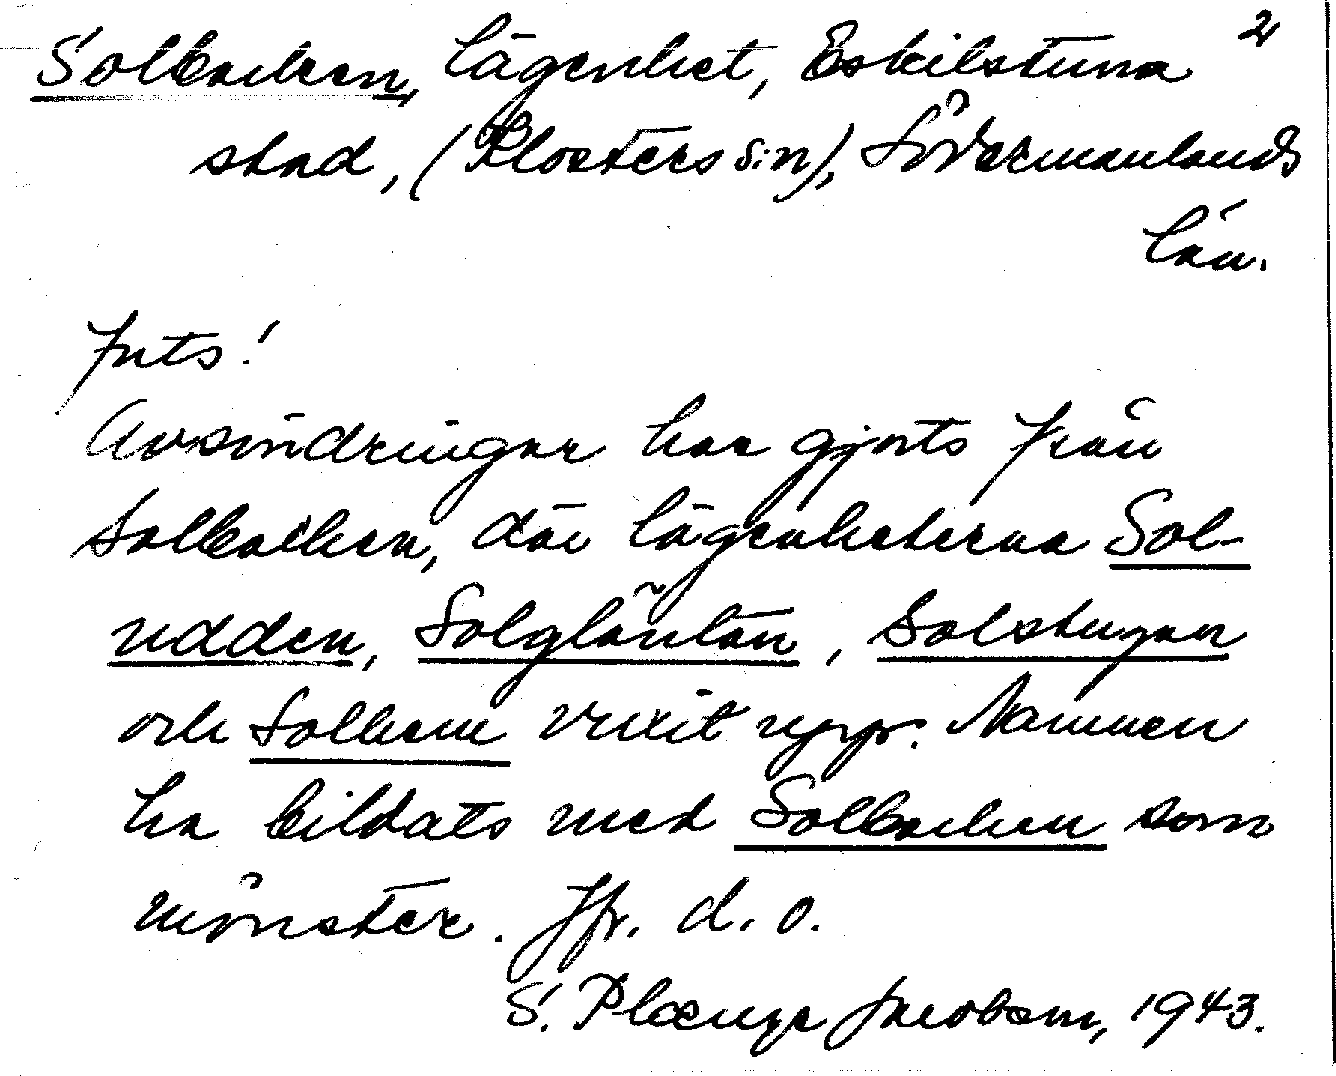 2
Solbacken, lägenhet, Eskilstuna
stad, (Klosters s:n), Södermanlands
län.
Forts!
Avsöndringar har gjorts från
Solbacken, där lägenheterna Sol-
udden, Solgläntan, Solstugan
och Solhem vuxit upp. Namnen
ha bildats med Solbacken som
mönster. Jfr. d. o.
S. Plænge Jacobson, 1943.